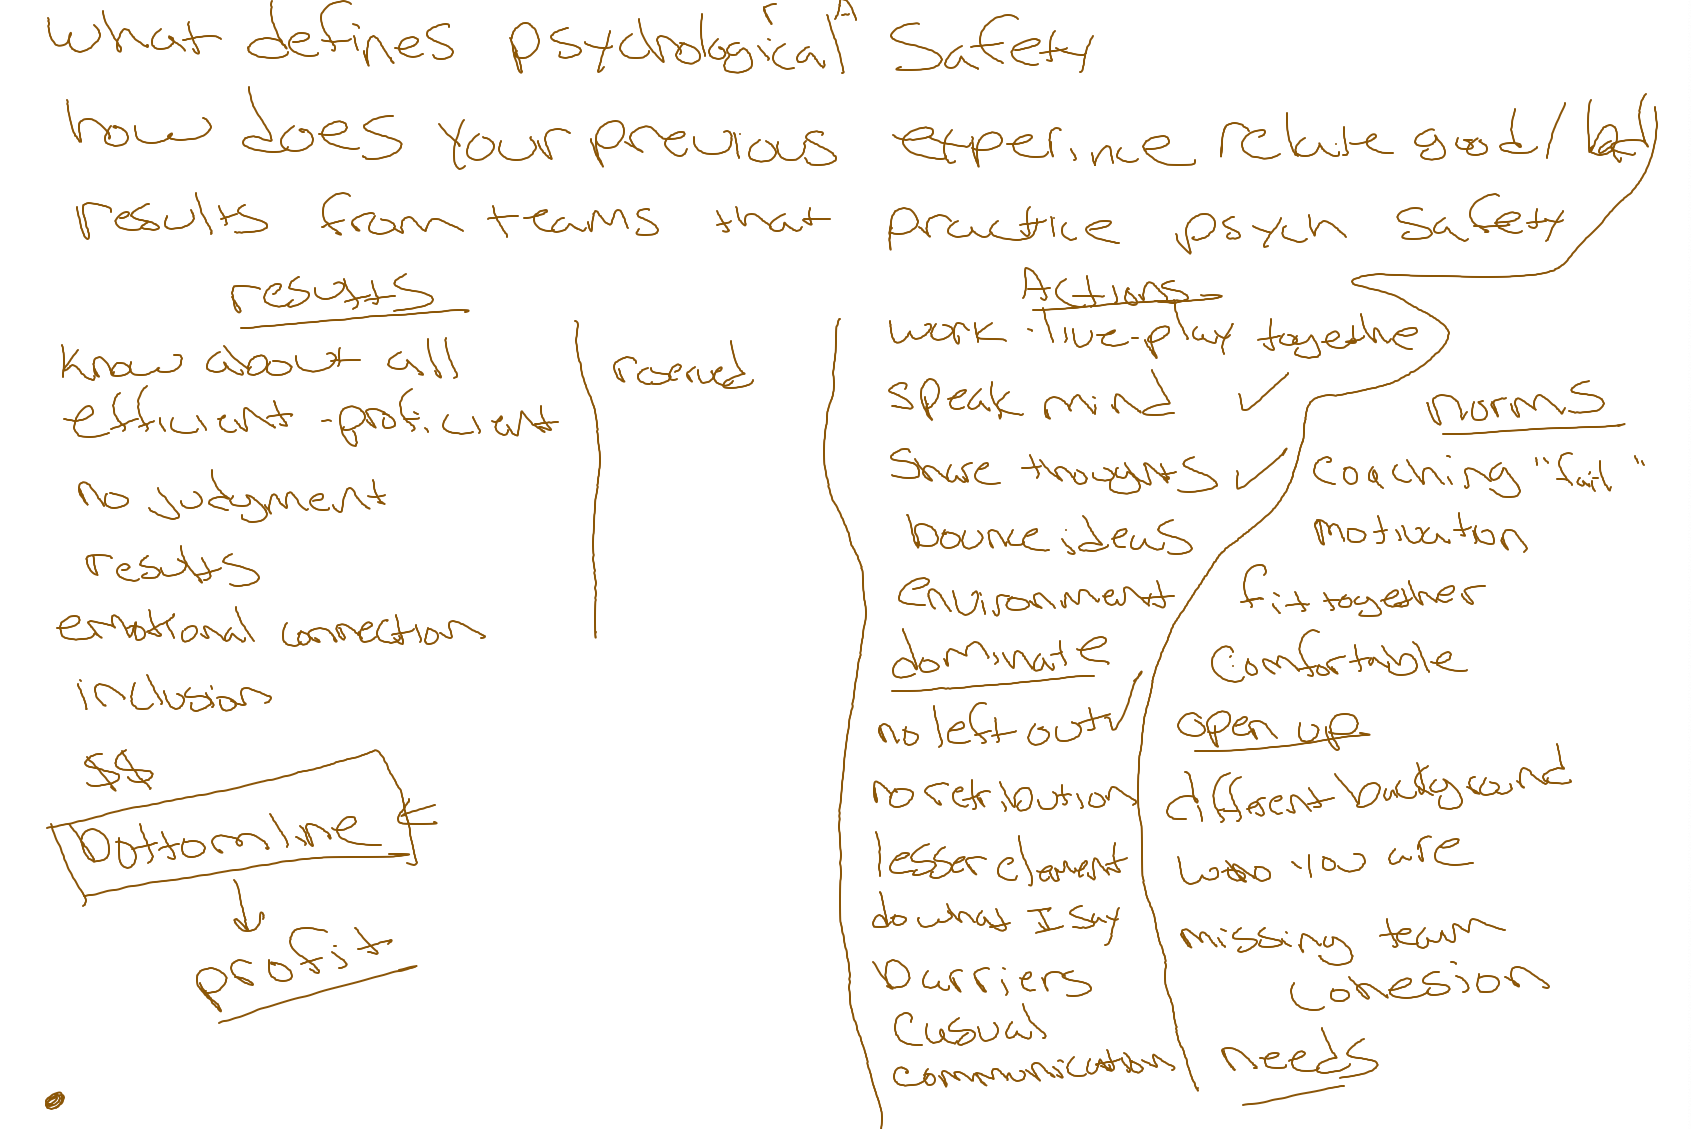 what defines psychological Safety
how does your previous experince relate good/bad
results from teams that practice psych safety
results
know about all
efficient - proficient
no judgment
results
emotional connection
inclusion
$$
bottomline
profit
reserved
Actions
work - live - play togethe
speak mind ✓
Share thoughts ✓
bounce ideas
environment
dominate
no left out ✓
no retribution
lesser element
do what I say
barriers
Casual
communication
norms
coaching "fail"
motivation
fit together
Comfortable
open up
different background
who you are
missing team
cohesion
needs